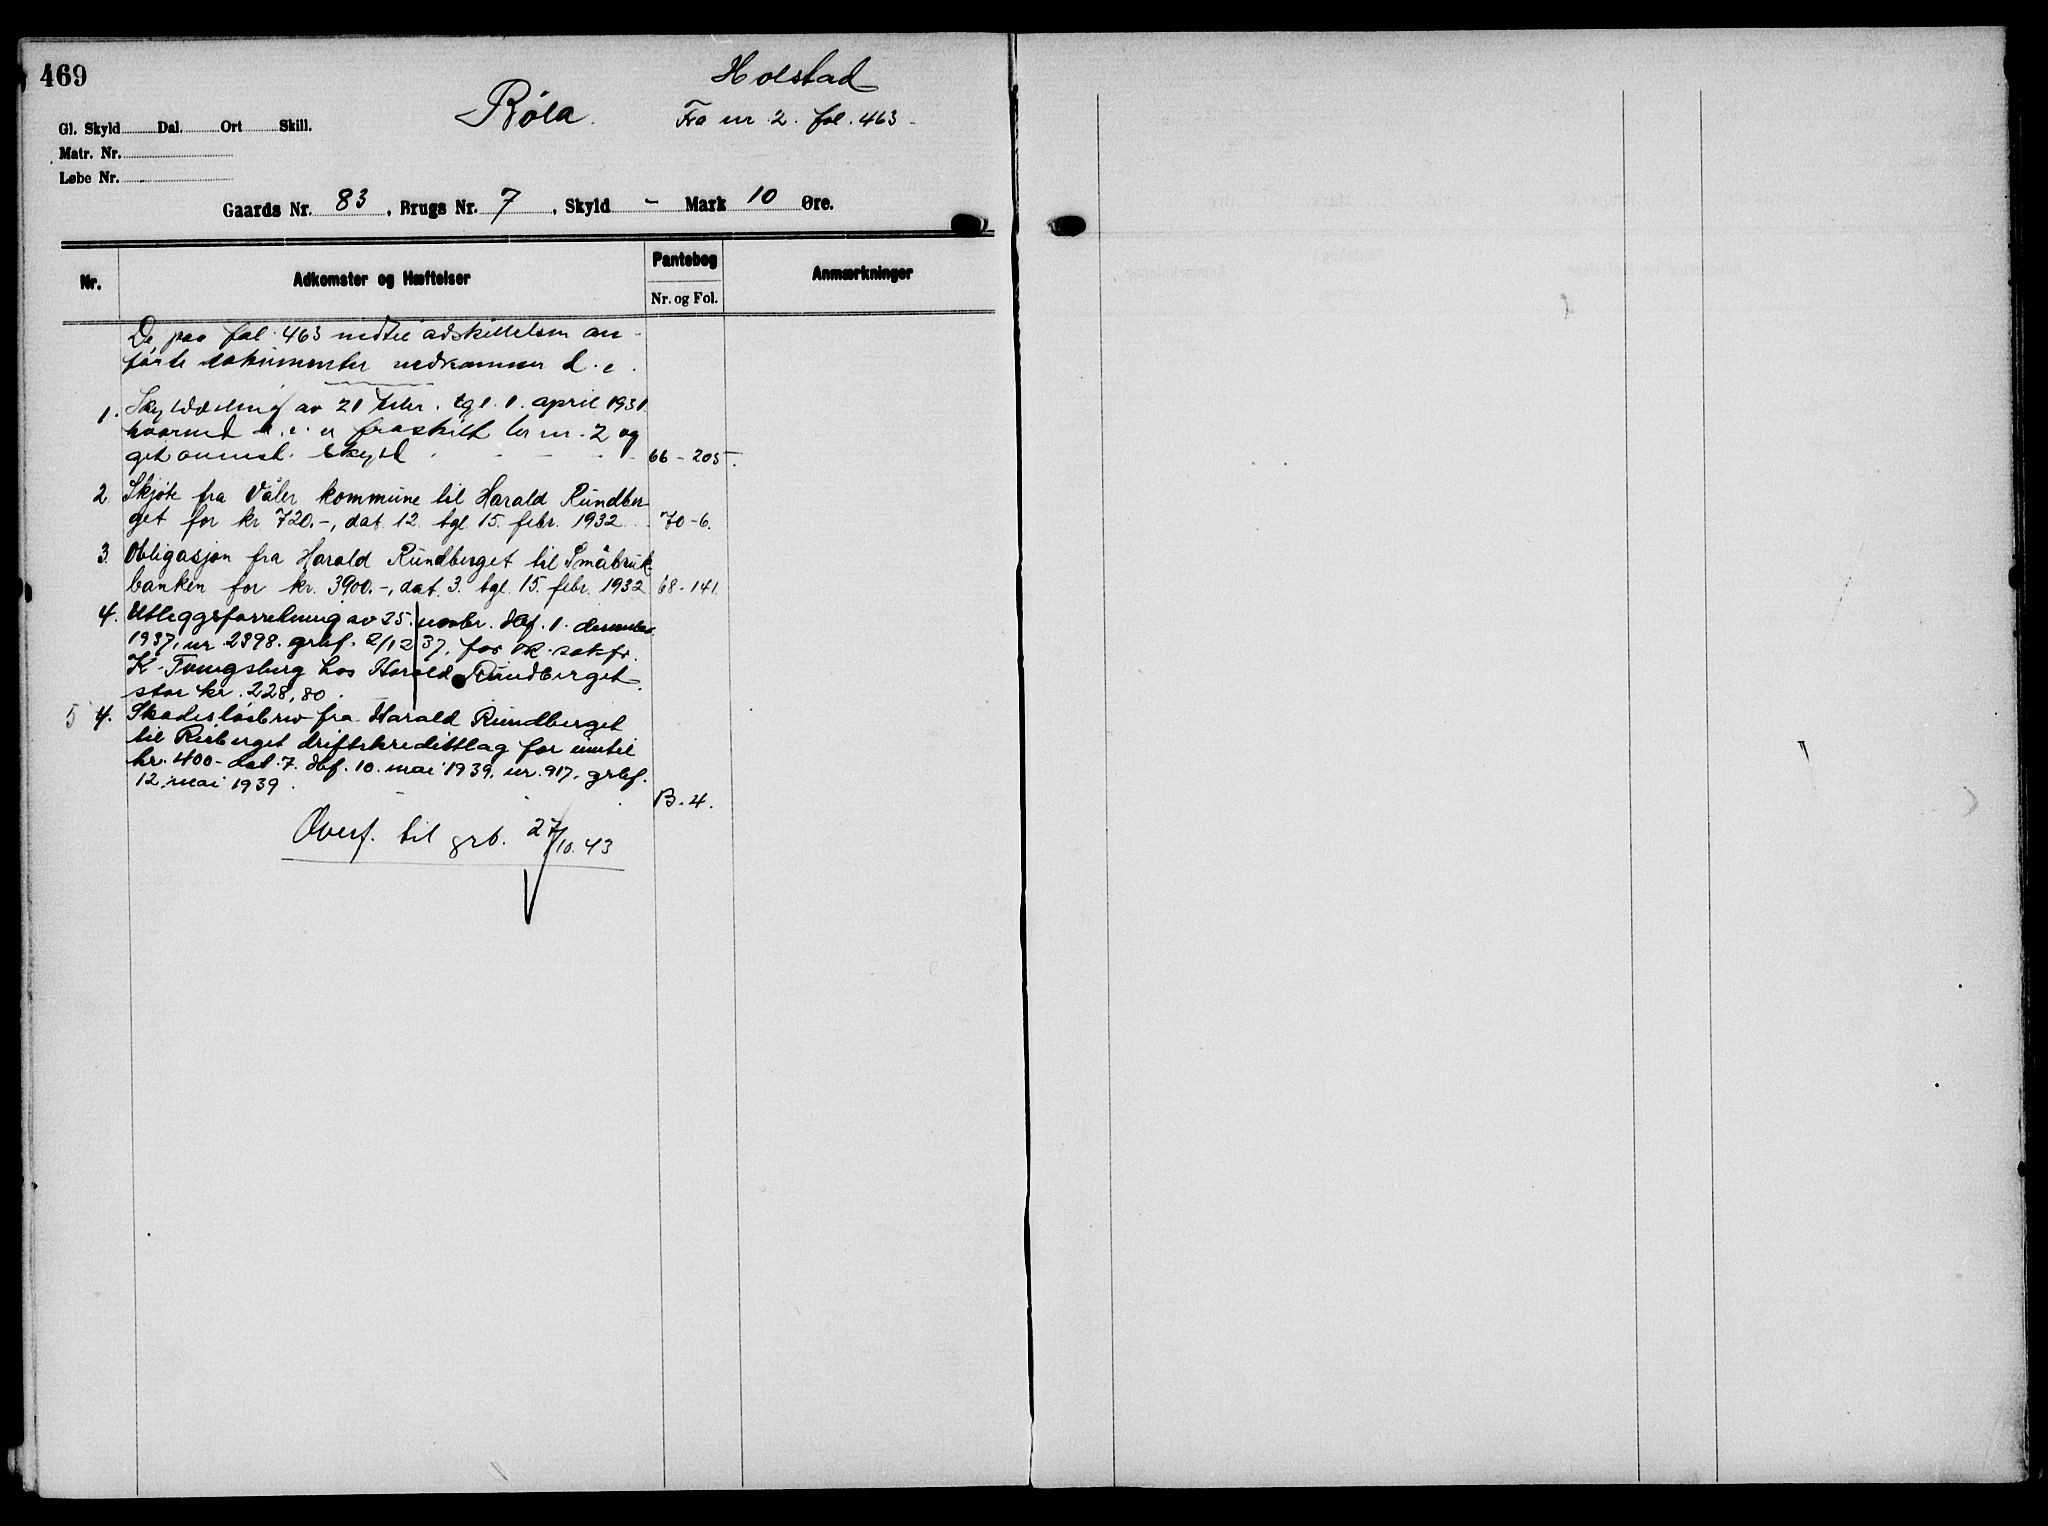 469
Holstad
Røla.
Fra nr 2. fol. 463.
Gl. Skyld Dal. Ort Skill.
Matr. Nr.
Løbe Nr.
Gaards Nr. 83, Brugs Nr. 7, Skyld - Mark 10 Øre.
Nr. Adkomster og Hæftelser Pantebog Anmærkninger
Nr. og Fol.
De paa fol. 463 indtil adskillelsen an-
førte dokumenter vedkommer d. e.
1. Skylddeling av 21 tgl. 1. april 1931
hvorved d. e. er fraskilt br nr. 2 og
git ovennst. skyld 66-205.
2 Skjøte fra Våler kommune til Harald Rundber-
get for kr 720.-, dat 12. tgl 15. febr. 1932 70-6.
3. Obligasjon fra Harald Rundberget til Småbruk-
banken for kr. 3900.-, dat. 3. tgl. 15. febr. 1932 68-141.
4. Utleggsforretning av 25. novbr. dbf. 1. desember
1937, nr 2398. grbf. 2/12 37, for sakfr.
K. hos Harald Rundberget
stor kr. 228,80.
5 4. Skadesløsbrev fra Harald Rundberget
til Risberget driftskredittlag for inntil
kr. 400- dat. 7. dbf. 10. mai 1939, nr. 917, grbf.
12. mai 1939. B-4.
Overf. til grb. 27/10. 43